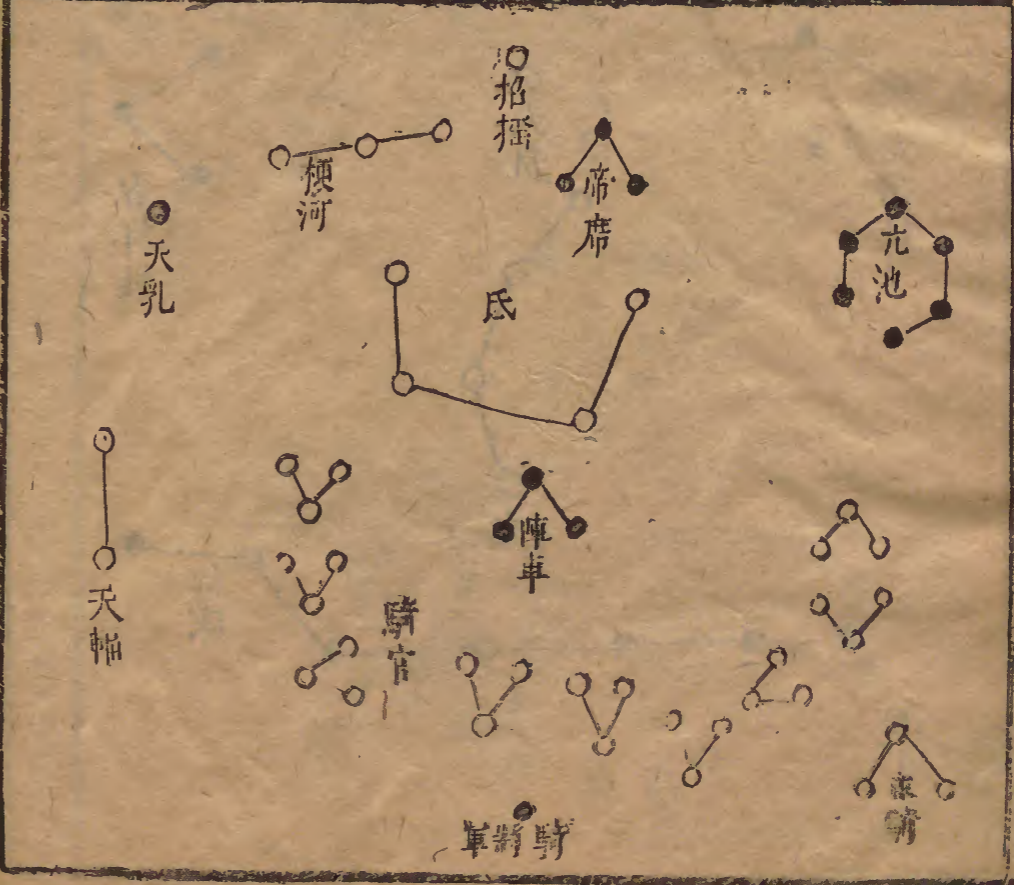 招搖
帝席
梗河
亢池
天乳
氐
陣車
天輻
騎官
車騎
騎將軍